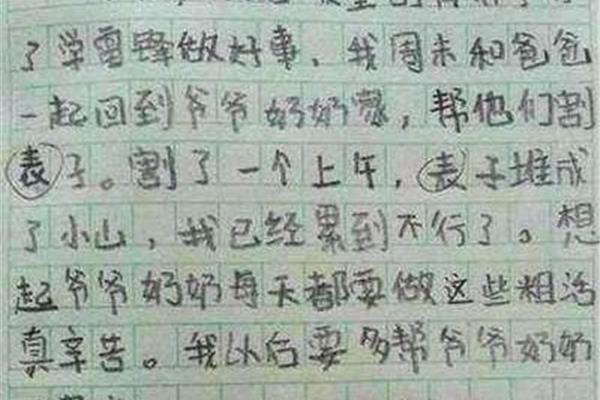 了学雷锋做好事，我周末和爸爸
一起回到爷爷奶奶家，帮他们割
表子。割了一个上午，表子堆成
了小山，我已经累到不行了。想
起爷爷奶奶每天都要做这些粗活
真辛苦。我以后要多帮爷爷奶奶